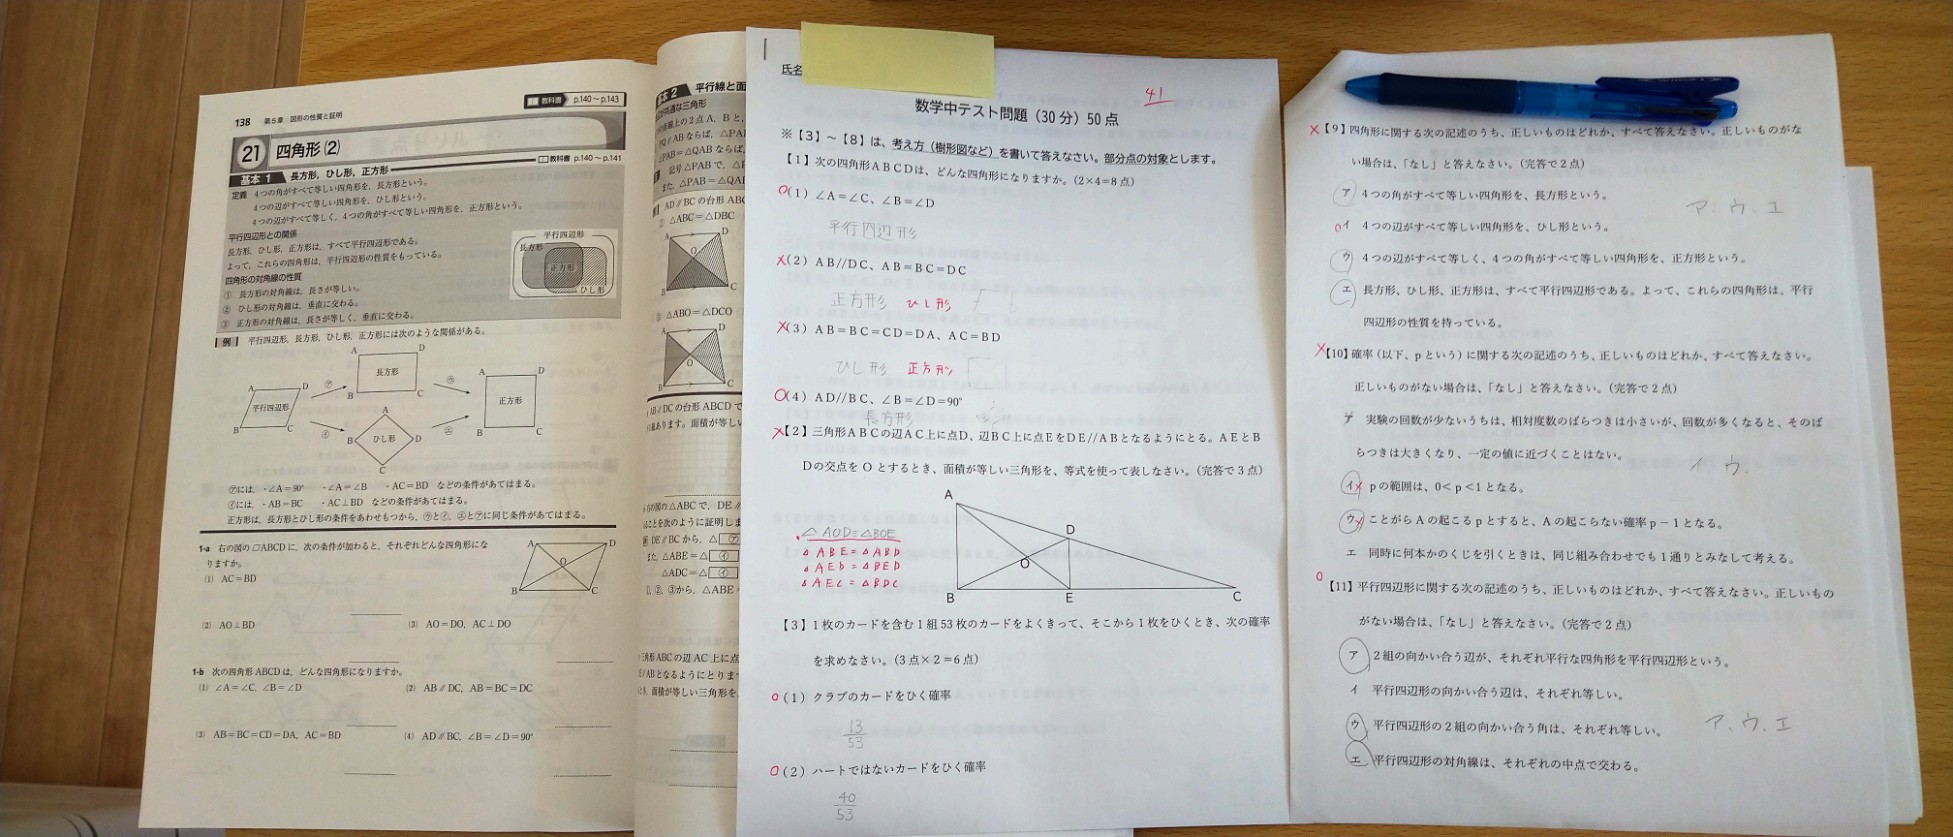 138 第5章 図形の性質と証明
教科書 p.140～p.143
21 四角形(2)
教科書 p.140～p.141
基本1 長方形，ひし形，正方形
定義 4つの角がすべて等しい四角形を，長方形という。
4つの辺がすべて等しい四角形を，ひし形という。
4つの辺がすべて等しく，4つの角がすべて等しい四角形を，正方形という。
平行四辺形との関係
長方形，ひし形，正方形は，すべて平行四辺形である。
よって，これらの四角形は，平行四辺形の性質をもっている。
平行四辺形
長方形
正方形
ひし形
四角形の対角線の性質
① 長方形の対角線は，長さが等しい。
② ひし形の対角線は，垂直に交わる。
③ 正方形の対角線は，長さが等しく，垂直に交わる。
例 平行四辺形，長方形，ひし形，正方形には次のような関係がある。
A D 長方形 B C
A D 平行四辺形 B C
㋐ ㋒
A D 正方形 B C
㋑ ㋓
A B ひし形 D C
㋐には，・∠A＝90° ・∠A＝∠B ・AC＝BD などの条件があてはまる。
㋑には，・AB＝BC ・AC⊥BD などの条件があてはまる。
正方形は，長方形とひし形の条件をあわせもつから，㋒と㋑，㋓と㋐に同じ条件があてはまる。
1-a 右の図の▱ABCDに，次の条件が加わると，それぞれどんな四角形にな
りますか。
A D O B C
(1) AC＝BD
(2) AO⊥BD (3) AO＝DO，AC⊥DO
1-b 次の四角形 ABCDは，どんな四角形になりますか。
(1) ∠A＝∠C，∠B＝∠D (2) AB∥DC，AB＝BC＝DC
(3) AB＝BC＝CD＝DA，AC＝BD (4) AD∥BC，∠B＝∠D＝90°
基本2 平行線と面
な三角形
上の2点 A，B と，
ABならば，△PA
△PAB＝△QABならば，
記号△PABで，△P
また，△PAB＝△QA
AD∥BCの台形ABC
△ABC＝△DBC
A D O B C
△ABO＝△DCO
A D O B C
AB∥DCの台形 ABCD で
組あります。面積が等し
の図の△ABCで，DE∥
ことを次のように証明しま
DE∥BCから，△ ㋐
また，△ABE＝△ ㋑
△ADC＝△ ㋑
①，②，③から，△ABE＝
三角形ABCの辺 AC 上に点
ABとなるようにとりま
，面積が等しい三角形を，
氏名
41
数学中テスト問題（30分）50点
※【3】～【8】は、考え方（樹形図など）を書いて答えなさい。部分点の対象とします。
【1】次の四角形ＡＢＣＤは、どんな四角形になりますか。（2×4＝8点）
（1）∠A＝∠C、∠B＝∠D
平行四辺形
（2）AB//DC、AB＝BC＝DC
正方形 ひし形
（3）AB＝BC＝CD＝DA、AC＝BD
ひし形 正方形
（4）AD//BC、∠B＝∠D＝90°
長方形
【2】三角形ＡＢＣの辺ＡＣ上に点D、辺ＢＣ上に点ＥをＤＥ//ＡＢとなるようにとる。ＡＥとＢ
Ｄの交点を O とするとき、面積が等しい三角形を、等式を使って表しなさい。（完答で3点）
△AOD＝△BOE
△ABE＝△ABD
△AED＝△BED
△AEC＝△BDC
A
D
O
B E C
【3】1枚のカードを含む1組53枚のカードをよくきって、そこから1枚をひくとき、次の確率
を求めなさい。（3点×2＝6点）
（1）クラブのカードをひく確率
13
53
（2）ハートではないカードをひく確率
40
53
【9】四角形に関する次の記述のうち、正しいものはどれか、すべて答えなさい。正しいものがな
い場合は、「なし」と答えなさい。（完答で2点）
ア 4つの角がすべて等しい四角形を、長方形という。
ア．ウ．エ
イ 4つの辺がすべて等しい四角形を、ひし形という。
ウ 4つの辺がすべて等しく、4つの角がすべて等しい四角形を、正方形という。
エ 長方形、ひし形、正方形は、すべて平行四辺形である。よって、これらの四角形は、平行
四辺形の性質を持っている。
【10】確率（以下、pという）に関する次の記述のうち、正しいものはどれか、すべて答えなさい。
正しいものがない場合は、「なし」と答えなさい。（完答で2点）
ア 実験の回数が少ないうちは、相対度数のばらつきは小さいが、回数が多くなると、そのば
らつきは大きくなり、一定の値に近づくことはない。
イ．ウ．
イ pの範囲は、0＜p＜1となる。
ウ ことがらAの起こるpとすると、Aの起こらない確率p－1となる。
エ 同時に何本かのくじを引くときは、同じ組み合わせでも1通りとみなして考える。
【11】平行四辺形に関する次の記述のうち、正しいものはどれか、すべて答えなさい。正しいもの
がない場合は、「なし」と答えなさい。（完答で2点）
ア 2組の向かい合う辺が、それぞれ平行な四角形を平行四辺形という。
イ 平行四辺形の向かい合う辺は、それぞれ等しい。
ウ 平行四辺形の2組の向かい合う角は、それぞれ等しい。
ア．ウ．エ
エ 平行四辺形の対角線は、それぞれの中点で交わる。